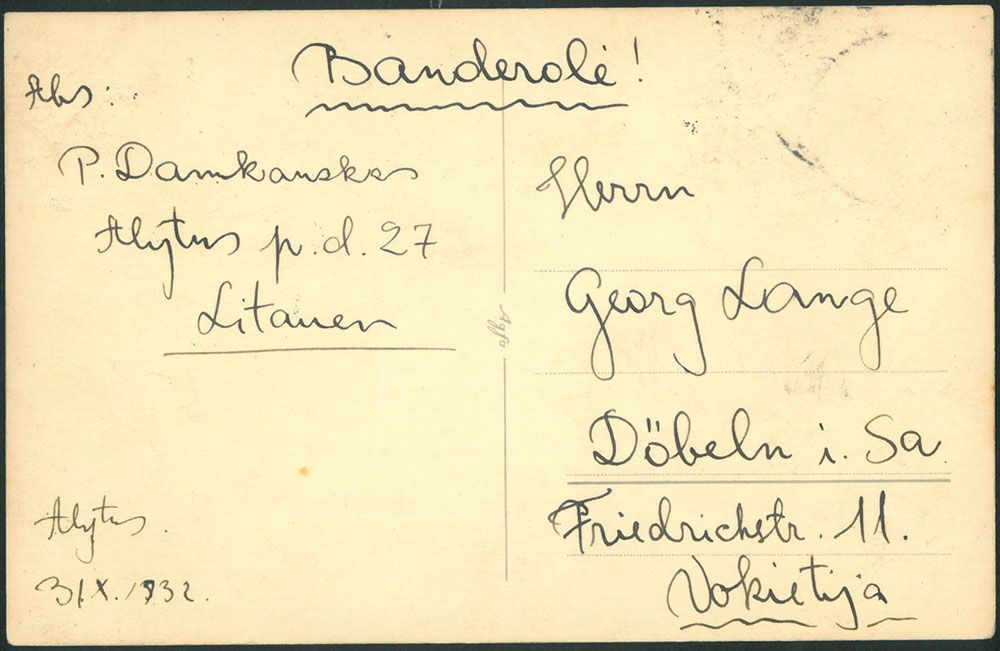 Banderolė!
Abs:
P. Damkauskas
Alytus p. d. 27
Litauen
Alytus.
3/X. 1932.
Agfa
Herrn
Georg Lange
Döbeln i. Sa.
Friedrichstr. 11.
Vokietija